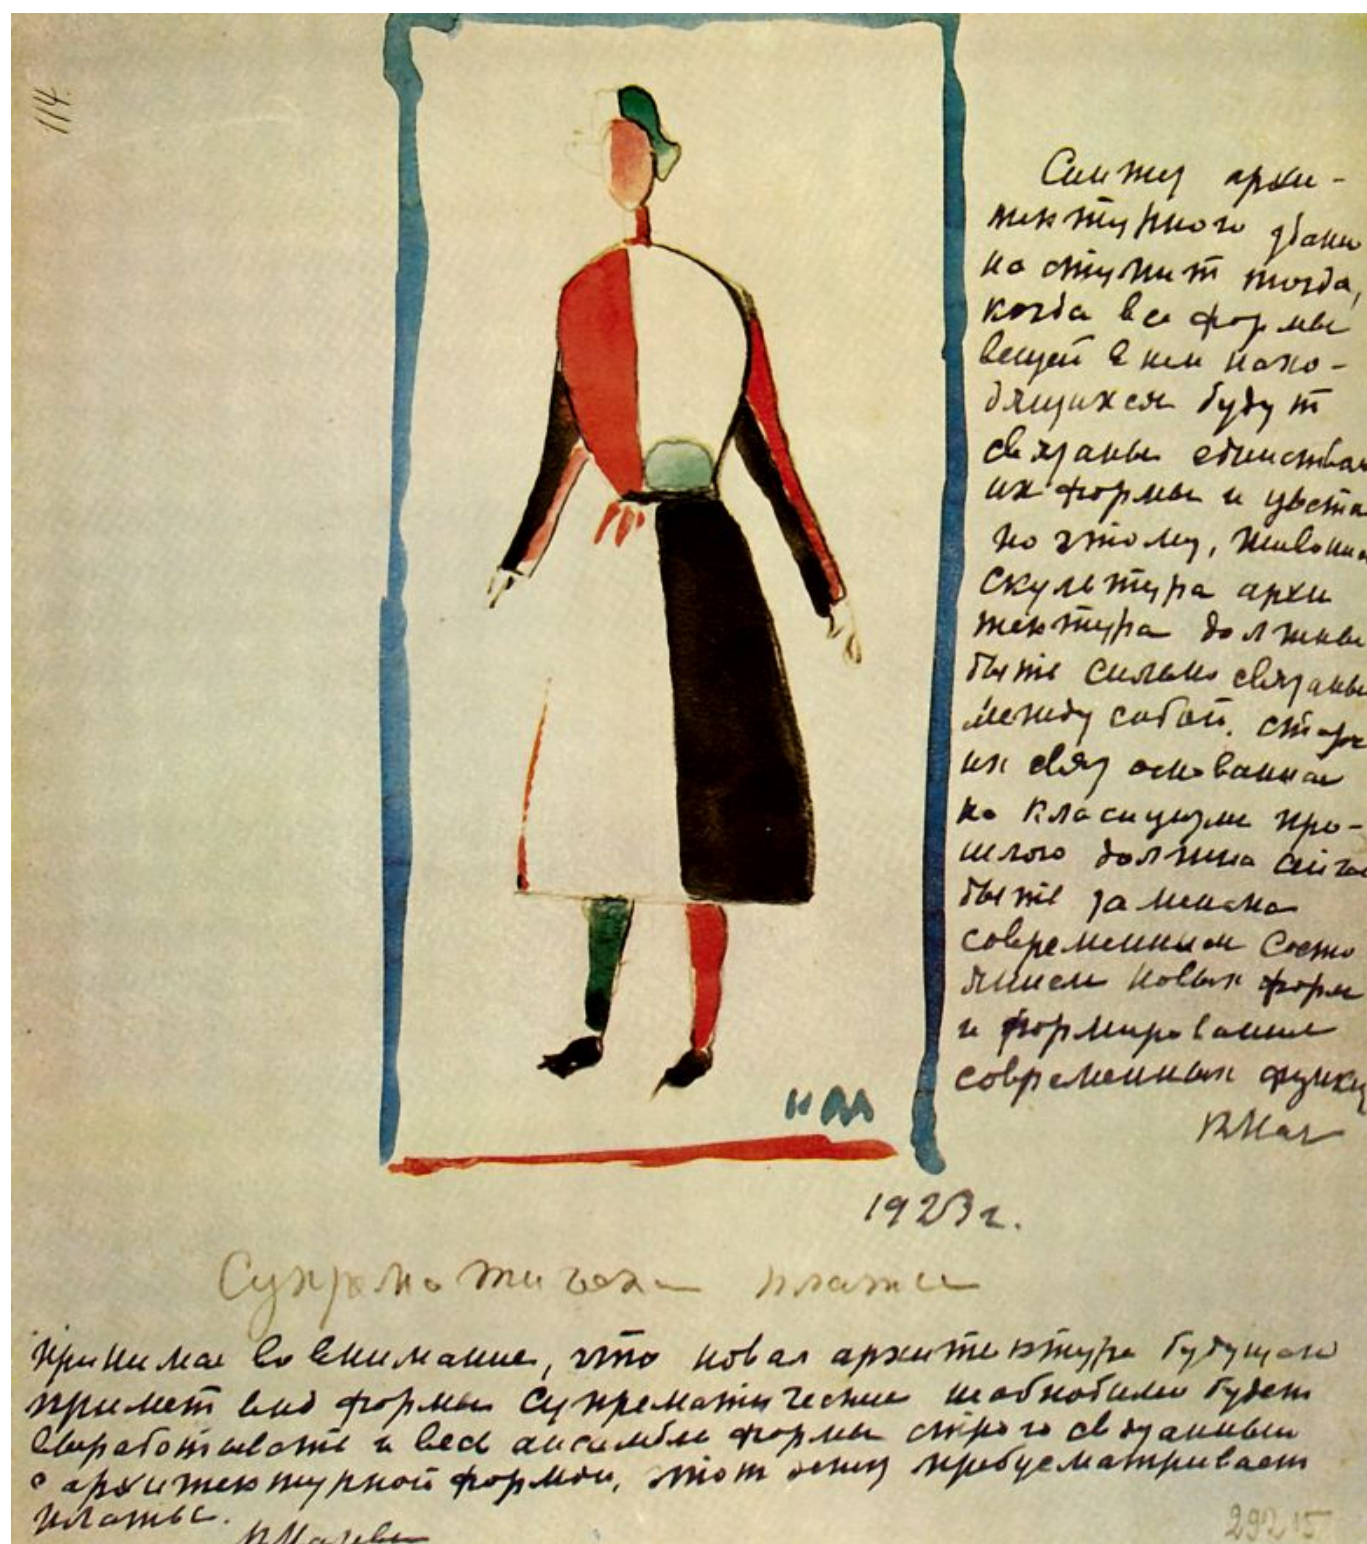 114.
Синтез архи-
тектурного здани
наступит тогда,
когда все формы
вещей в нем нахо-
дящихся будут
связаны единством
их формы и цвета
по этому, живопис
скульптура архи
тектура должны
быть сильно связаны
между собой. стар
их связ основанная
на класицизме про-
шлого должна
быть заменена
современным
новых форм
и формирования
современных функц
КМал
КМ
1923г.
Супрематическ платье
принимая во внимание, что новая архитектура будущего
примет вид формы супрематические необходимо будет
выработывать и весь ансамбль формы строго связанный
с архитектурной формой, этот эскиз предусматривает
платье.
КМалеви
29215